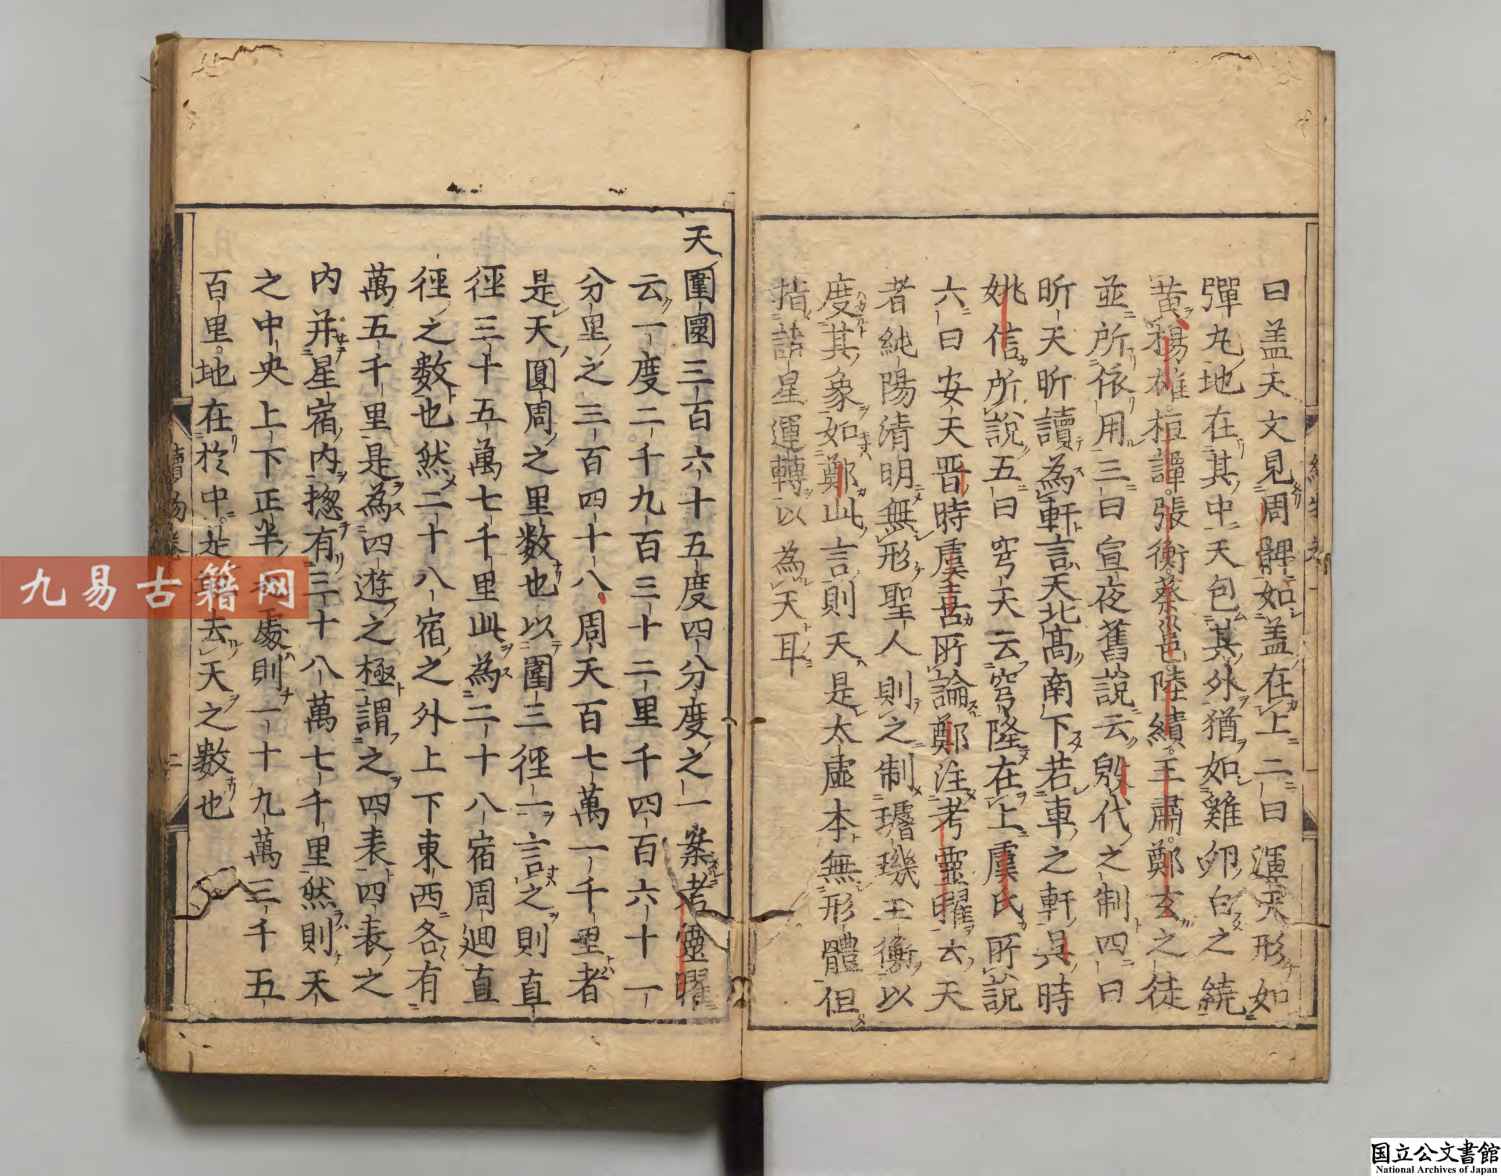 曰盖天文見周髀如盖在上二曰渾天形如
彈丸地在其中天包其外猶如雞卵白之繞
黄揚雄桓譚張衡蔡邕陸績王肅鄭玄之徒
並所依用三曰宣夜舊說云殷代之制四曰
昕天昕讀為軒言天北髙南下若車之軒吳時
姚信所說五曰穹天云穹隆在上虞氏所說
六曰安天晋時虞喜所論鄭注考靈曜云天
者純陽清明無形聖人則之制璿璣玉衡以
度其象如鄭此言則天是太虚本無形體但
指諸星運轉以為天耳
天圍圜三百六十五度四分度之一案考靈曜
云一度二千九百三十二里千四百六十一
分里之三百四十八周天百七萬一千里者
是天圓周之里数也以圍三徑一言之則直
徑三十五萬七千里此為二十八宿周迴直
徑之数也然二十八宿之外上下東西各有
萬五千里是為四遊之極謂之四表四表之
内并星宿内揔有三十八萬七千里然則天
之中央上下正半之處則一十九萬三千五
百里地在於中是地去天之数也
二
九易古籍网
国立公文書館
National Archives of Japan